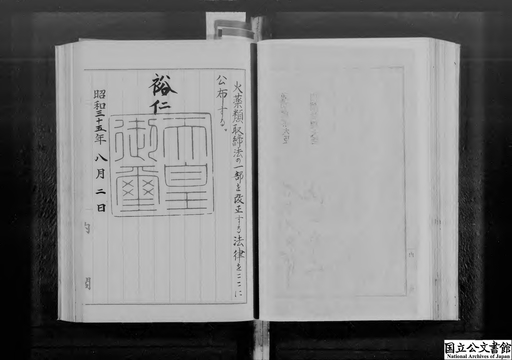 火薬類取締法の一部を改正する法律をここに
公布する。
裕仁
天皇
御璽
昭和三十五年 八月 二日
内閣
国立公文書館
National Archives of Japan